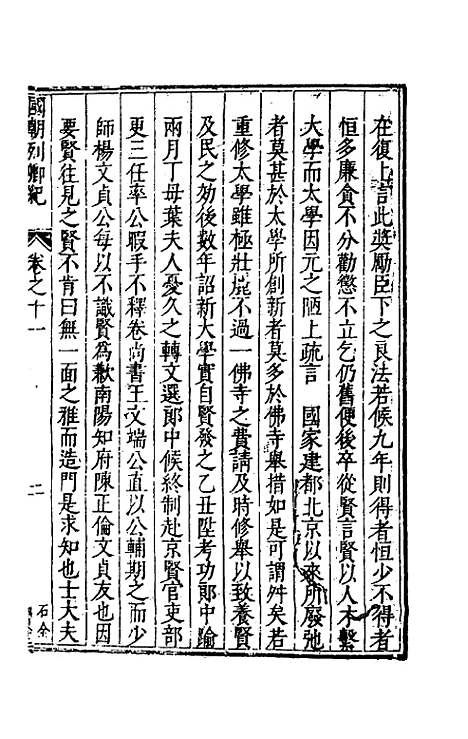 在復上言此奬勵臣下之良法若候九年則得者恒少不得者
恒多廉貪不分勸懲不立乞仍舊便後卒從賢言賢以人木繫
大學而太學因元之陋上疏言　國家建都北京以來所廢弛
者莫甚於太學所創新者莫多於佛寺舉措如是可謂舛矣若
重修太學雖極壯麗不過一佛寺之費請及時修舉以致養賢
及民之効後數年詔新大學實自賢發之乙丑陞考功郎中踰
兩月丁母葉夫人憂久之轉文選郎中候終制赴京賢官吏部
更三任率公暇手不釋卷尚書王文端公直以公輔期之而少
師楊文貞公每以不識賢為歉南陽知府陳正倫文貞友也因
要賢往見之賢不肯曰無一面之雅而造門是求知也士大夫
國朝列卿紀
卷之十一
二
石全